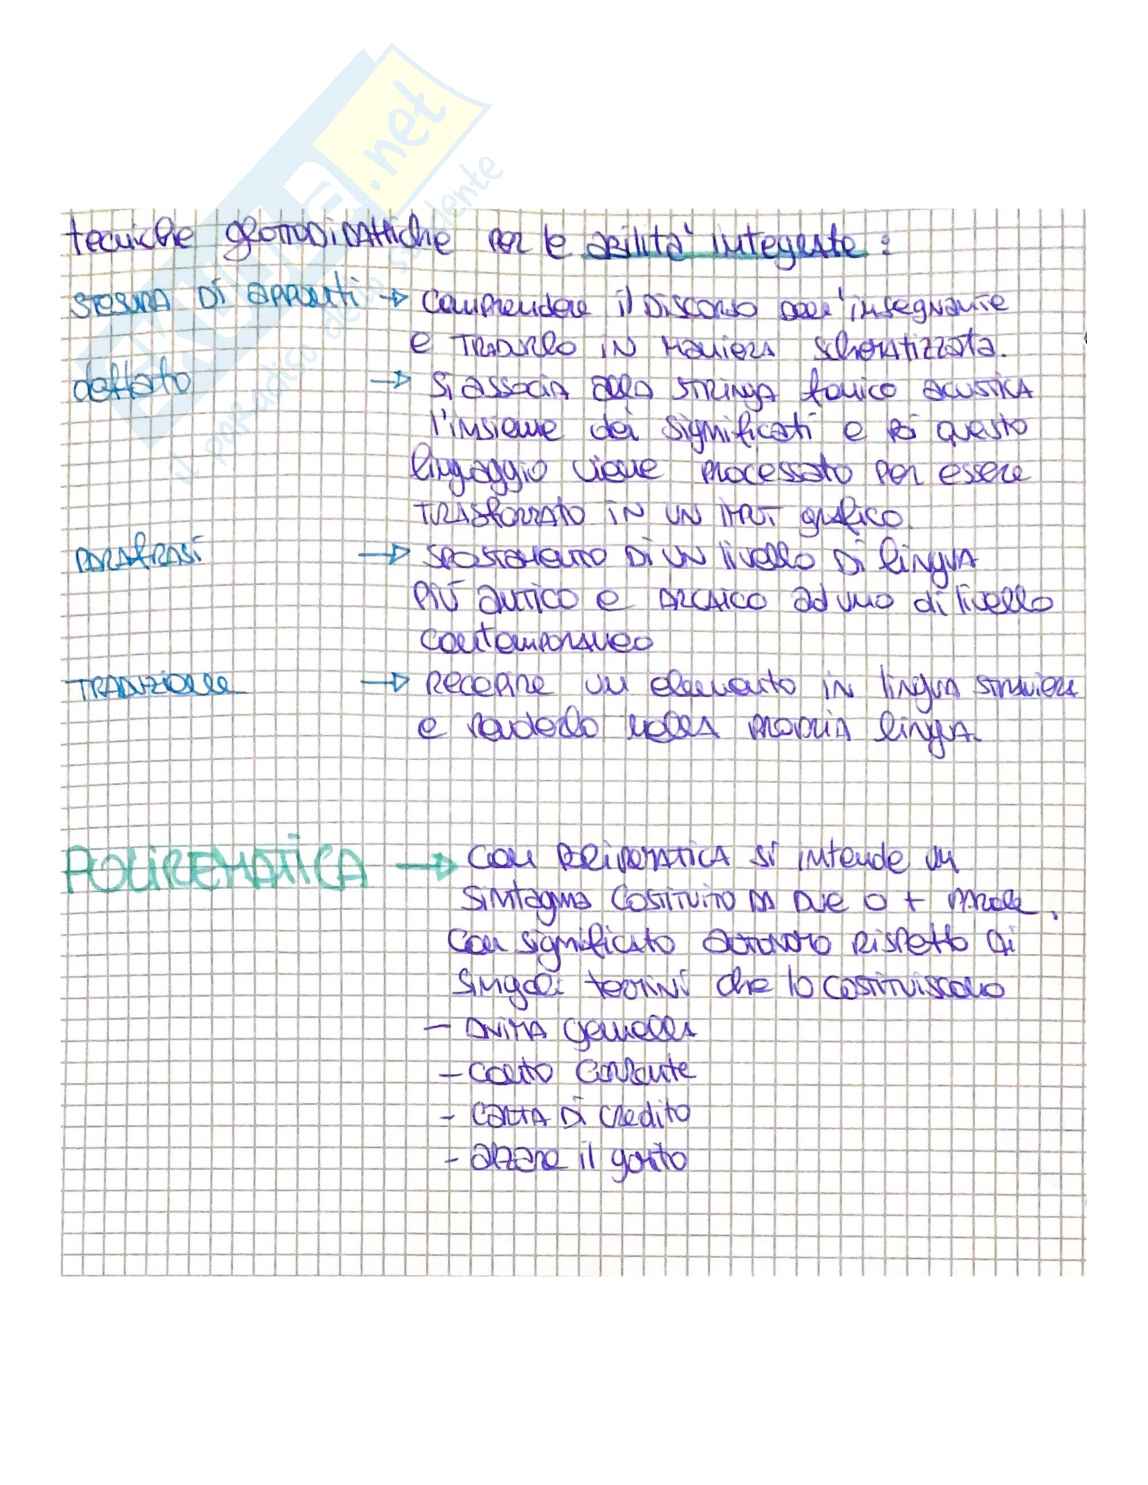 tecniche glottodidattiche per le abilità integrate:
stesura di appunti → comprendere il discorso dell'insegnante
e tradurlo in maniera schematizzata.
dettato → si associa alla stringa fonico acustica
l'insieme dei significati e poi questo
linguaggio viene processato per essere
trasformato in un input grafico.
parafrasi → spostamento di un livello di lingua
più antico e arcaico ad uno di livello
contemporaneo
traduzione → recepire un elemento in lingua straniera
e renderlo nella propria lingua.
POLIREMATICA → con polirematica si intende un
sintagma costituito da due o + parole,
con significato autonomo rispetto ai
singoli termini che lo costituiscono
- anima gemella
- conto corrente
- carta di credito
- alzare il gomito
.net